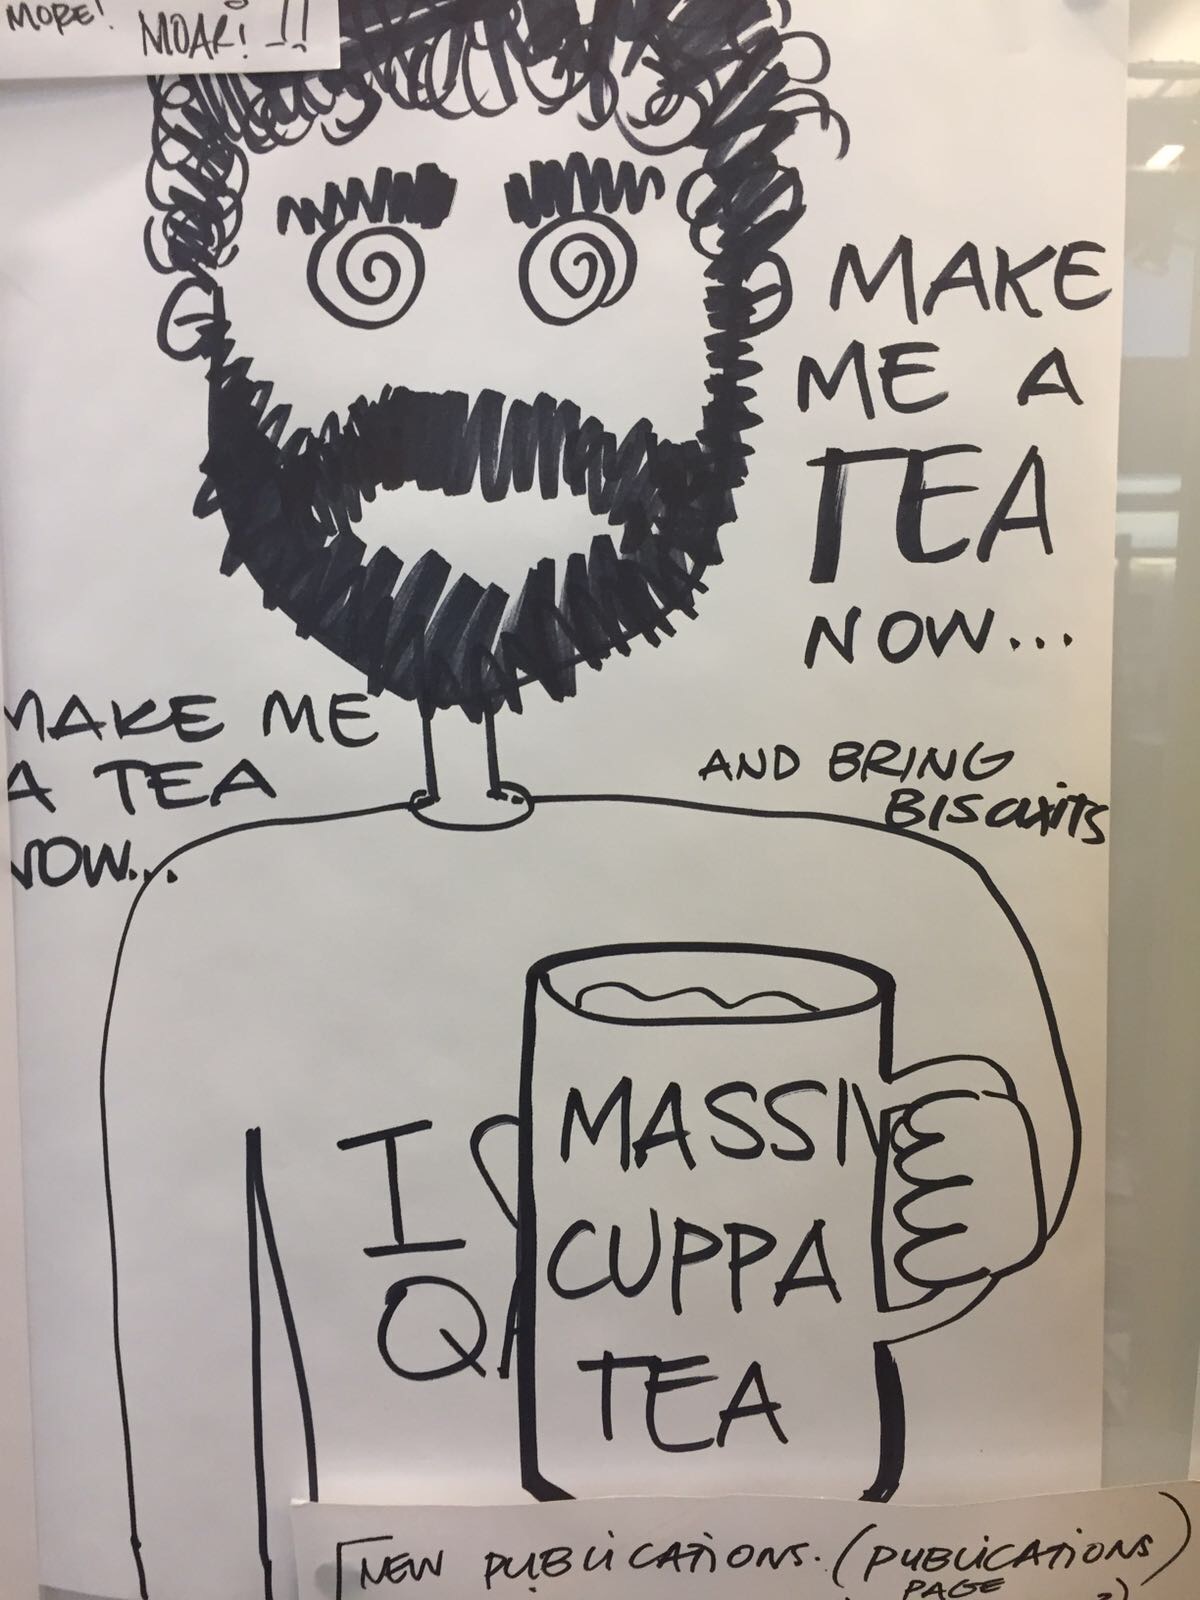 MORE! MOAR! !!
MAKE
ME A
TEA
NOW...
MAKE ME
A TEA
NOW...
AND BRING
BISCUITS
I
Q
MASSIV
CUPPA
TEA
NEW PUBLICATIONS. (PUBLICATIONS)
PAGE